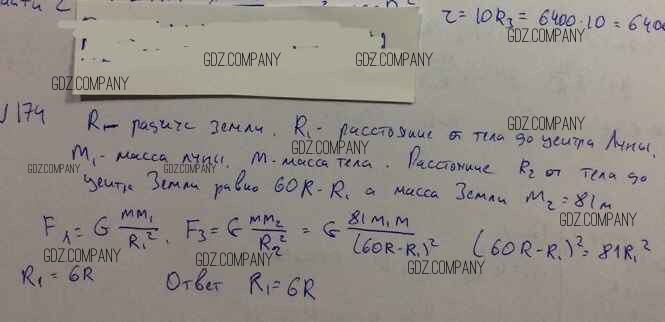 r = 10R₃ = 6400·10 = 6400
GDZ.COMPANY
GDZ.COMPANY
GDZ.COMPANY
GDZ.COMPANY
№174
R – радиус Земли. R₁ - расстояние от тела до центра Луны.
GDZ.COMPANY
M₁ - масса луны. M - масса тела. Расстояние R₂ от тела до
GDZ.COMPANY GDZ.COMPANY
центра Земли равно 60R-R₁ а масса Земли M₂ = 81м
GDZ.COMPANY
F₁ = G mm₁/R₁². F₃ = G mm₂/R₂² = G 81m₁m/(60R-R₁)² (60R-R₁)² = 81R₁²
GDZ.COMPANY GDZ.COMPANY GDZ.COMPANY
R₁ = 6R Ответ R₁ = 6R